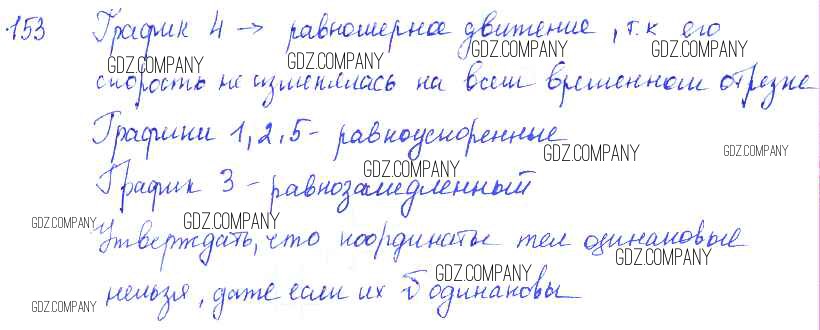 153 График 4 → равномерное движение, т.к его
скорость не изменялась на всем временном отрезке
Графики 1, 2, 5 - равноускоренные
График 3 - равнозамедленный
Утверждать, что координаты тел одинаковые
нельзя, даже если их v̄ одинаковы
GDZ.COMPANY
GDZ.COMPANY
GDZ.COMPANY
GDZ.COMPANY
GDZ.COMPANY
GDZ.COMPANY
GDZ.COMPANY
GDZ.COMPANY
GDZ.COMPANY
GDZ.COMPANY
GDZ.COMPANY
GDZ.COMPANY
GDZ.COMPANY